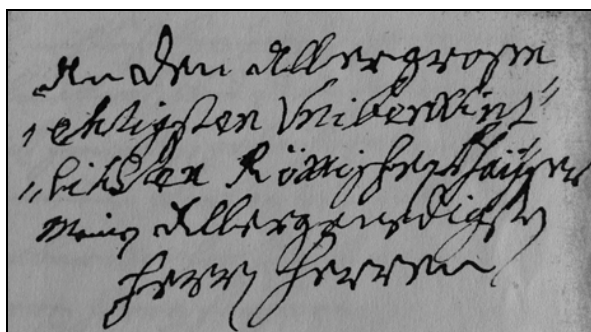 An den Allergrosm
„echtigsten Vniberwint„
„lichsten Römischen Khaißer
Mein Allergenedigstn
Herrn Herren